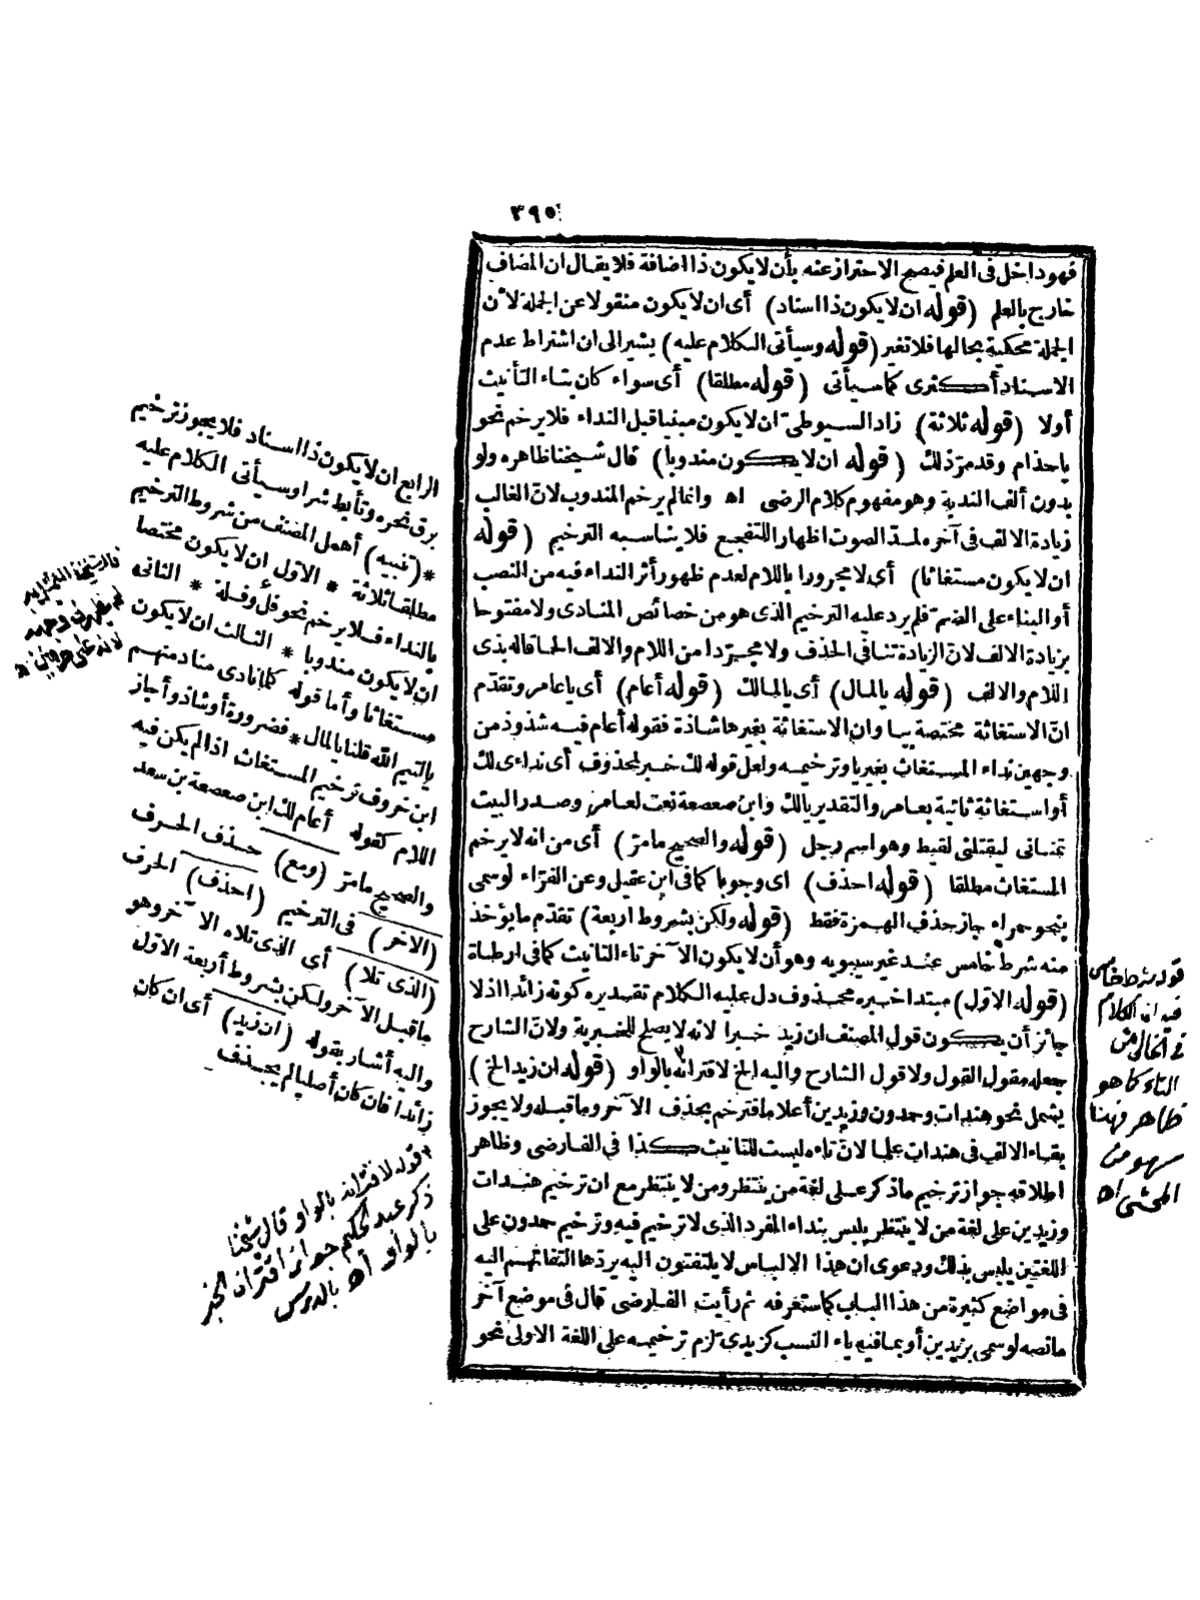 ٣٩٥
فهو داخل فى العلم فيصح الاحتراز عنه بأن لا يكون ذا اضافة فلا يقال ان المضاف
خارج بالعلم (قوله ان لا يكون ذا اسناد) أى ان لا يكون منقولا عن الجملة لأن
الجملة محكية بحالها فلا تغير (قوله وسيأتى الكلام عليه) يشير الى ان اشتراط عدم
الاسناد أكثرى كما سيأتى (قوله مطلقا) أى سواء كان بتاء التأنيث
أولا (قوله ثلاثة) زاد السيوطى ان لا يكون مبنيا قبل النداء فلا يرخم نحو
يا حذام وقد مر ذلك (قوله ان لا يكون مندوبا) قال شيخنا ظاهره ولو
بدون ألف الندبة وهو مفهوم كلام الرضى اه وانما لم يرخم المندوب لان الغالب
زيادة الالف فى آخره لمد الصوت اظهارا للتفجع فلا يناسبه الترخيم (قوله
ان لا يكون مستغاثا) أى لا مجرورا باللام لعدم ظهور أثر النداء فيه من النصب
أو البناء على الضم فلم يرد عليه الترخيم الذى هو من خصائص المنادى ولا مفتوحا
بزيادة الالف لان الزيادة تنافى الحذف ولا مجردا من اللام والالف الحاقا له بذى
اللام والالف (قوله يا لمال) أى يا لمالك (قوله أعام) أى يا عامر وتقدم
ان الاستغاثة مختصة بيا وان الاستغاثة بغيرها شاذة فقوله أعام فيه شذوذ من
وجهين نداء المستغاث بغير يا وترخيمه ولعل قوله لك خبر لمحذوف أى نداءى لك
أو استغاثة ثانية بعامر والتقدير يا لك وابن صعصعة نعت لعامر وصدر البيت
تمنانى ليقتلنى لقيط وهو اسم رجل (قوله والصحيح ما مر) أى من انه لا يرخم
المستغاث مطلقا (قوله احذف) اى وجوبا كما فى ابن عقيل وعن الفراء لو سمى
بنحو حمراء جاز حذف الهمزة فقط (قوله ولكن بشروط اربعة) تقدم ما يؤخذ
منه شرط خامس عند غير سيبويه وهو أن لا يكون الآخر تاء التانيث كما فى ارطاة
(قوله الاول) مبتدا خبره محذوف دل عليه الكلام تقديره كونه زائدا اذ لا
جائز أن يكون قول المصنف ان زيد خبرا لانه لا يصلح للخبرية ولان الشارح
جعله مقول القول ولا قول الشارح واليه الخ لاقترانه بالواو (قوله ان زيد الخ)
يشمل نحو هندات وحمدون وزيدين أعلاما فترخم بحذف الآخر وما قبله ولا يجوز
بقاء الالف فى هندات علما لان تاءه ليست للتانيث كذا فى الفارضى وظاهر
اطلاقه جواز ترخيم ما ذكر على لغة من ينتظر ومن لا ينتظر مع ان ترخيم هندات
وزيدين على لغة من لا ينتظر يلبس بنداء المفرد الذى لا ترخيم فيه وترخيم حمدون على
اللغتين يلبس بذلك ودعوى ان هذا الالباس لا يلتفتون اليه يردها التفاتهم اليه
فى مواضع كثيرة من هذا الباب كما ستعرفه ثم رأيت الفارضى قال فى موضع آخر
ما نصه لو سمى بزيدين أو بما فيه ياء النسب كزيدى لزم ترخيمه على اللغة الاولى نحو
الرابع ان لا يكون ذا اسناد فلا يجوز ترخيم
برق نحره وتأبط شرا وسيأتى الكلام عليه
* (تنبيه) أهمل المصنف من شروط الترخيم
مطلقا ثلاثة * الاول ان لا يكون مختصا
بالنداء فلا يرخم نحو فل وفلة * الثانى
ان لا يكون مندوبا * الثالث ان لا يكون
مستغاثا وأما قوله كلما نادى مناد منهم
يا لتيم الله قلنا يا لمال * فضرورة أو شاذ وأجاز
ابن خروف ترخيم المستغاث اذا لم يكن فيه
اللام كقوله أعام لك ابن صعصعة بن سعد
والصحيح ما مر (ومع) حذف الحرف
(الاخر) فى الترخيم (احذف) الحرف
(الذى تلا) أى الذى تلاه الآخر وهو
ما قبل الآخر ولكن بشروط أربعة الاول
واليه أشار بقوله (ان زيد) أى ان كان
زائدا فان كان أصليا لم يحذف
لانه على حرفين اه
قوله لاقترانه بالواو قال شيخنا
ذكر عبد الحكيم جواز اقتران الخبر
بالواو اه بالدرس
قوله شرط خامس
فيه ان الكلام
فى الخالى من
التاء كما هو
ظاهر فهذا
سهو من
المحشى اه